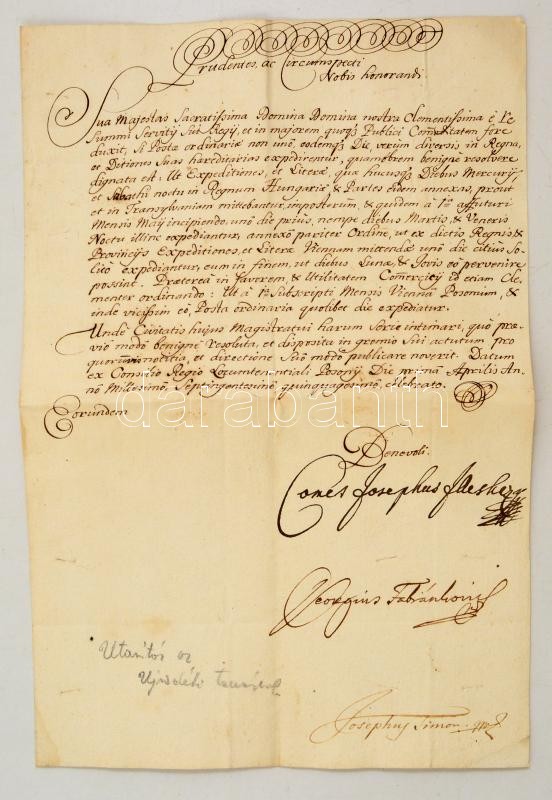 Prudentes, ac Circumspecti
Nobis honorandi.
Sua Majestas Sacratissima Domina Domina nostra Clementissima è Re
Summi Servitij Sui Regij, et in majorem quoq; Publici Comoditatem fore
duxit, si Posta ordinaria non unô, eodemq; Die, verùm diversis, in Regna,
et Ditiones Suas hæreditarias expedirentur, quamobrem benigne resolvere
dignata est: Ut Expeditiones, et Literæ, quæ hucusq; Diebus Mercurij
et Sabathi noctu in Regnum Hungariæ & Partes eidem annexas, prout
et in Transylvaniam mittebantur, imposterùm, & quidem à 1a affuturi
Mensis Maij incipiendo, unô die priùs, nempe diebus Martis, & Veneris
Noctu illinc expediantur, annexô pariter Ordine, ut ex dictis Regnis &
Provincijs Expeditiones, et Literæ Viennam mittendæ unô die citiùs So-
litô expediantur, eum in finem, ut diebus Lunæ, & Jovis eò pervenire
possint. Præterea in favorem, & Utilitatem Comercij id etiam Cle-
menter ordinando: Ut à 1a Subscripti Mensis Viennâ Posonium, &
inde vicissim eò, Posta ordinaria quotibet die expediatur.
Unde Civitatis hujus Magistratui harum Serie intimari, quô præ-
viô modô benigne resoluta, et disposita in gremio Sui actutum pro
quorumvis notitia, et directione Suô modô publicare noverit. Datum
ex Consilio Regio Locumtenentiali Posonij Die prima Aprilis An-
nô Millesimô, Septingentesimô, quinquagesimô, Celebrato.
Eorundem
Benevoli.
Comes Josephus Illeshazy
Georgius Fabiankovics
Josephus Timon
Utasítás az
Ujvidéki
darabanth